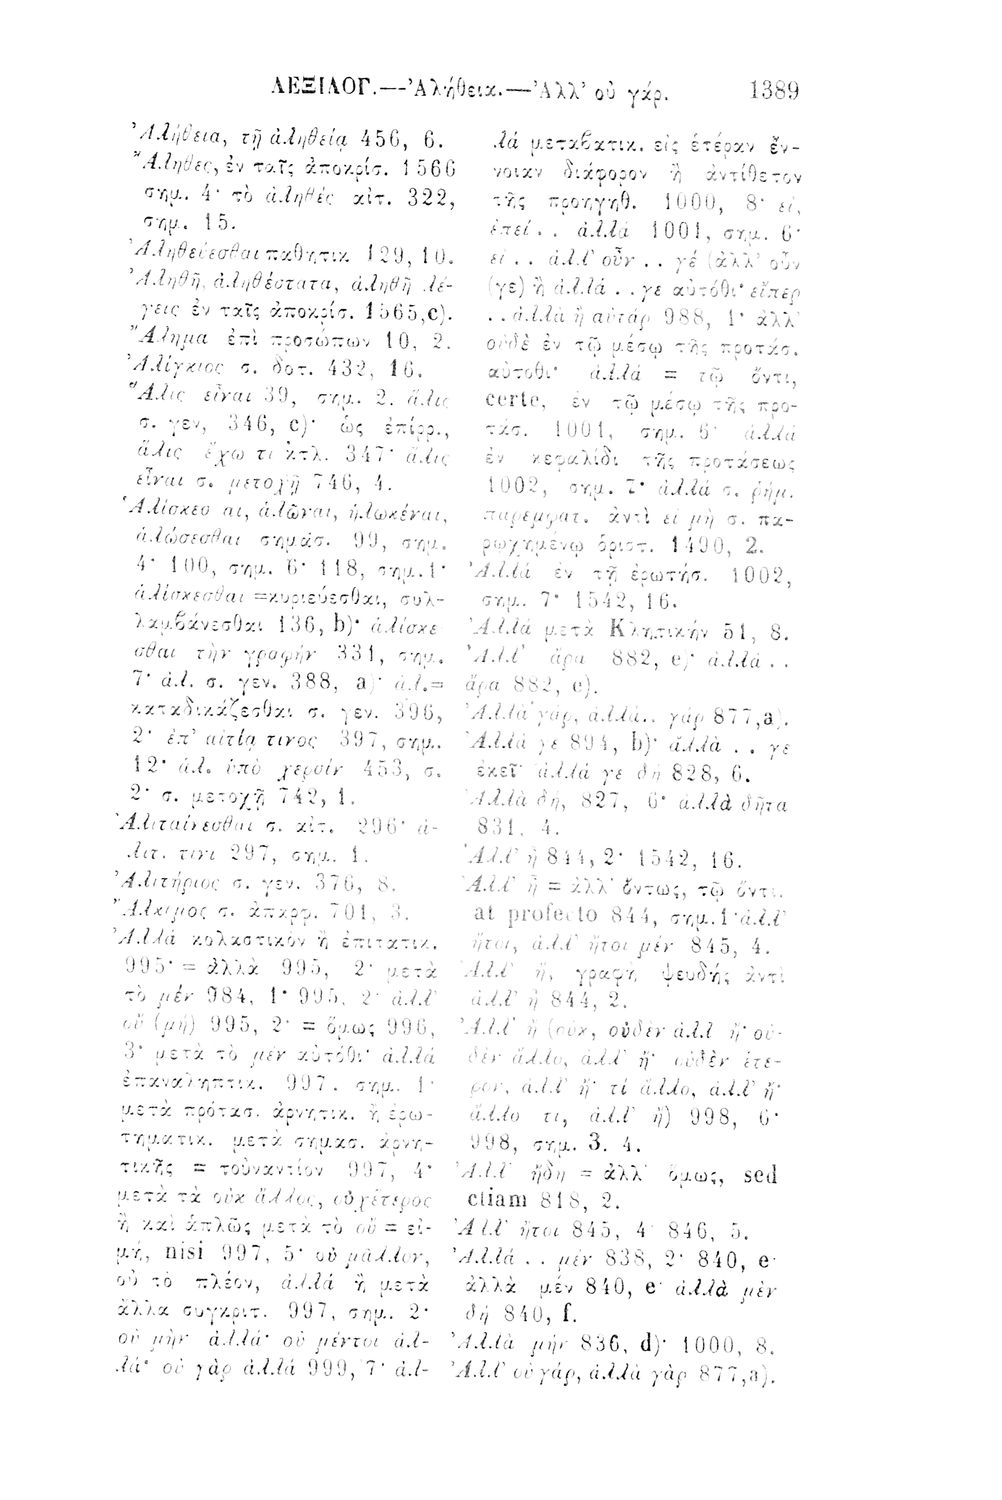 ΛΕΞΙΛΟΓ.—Ἀλήθεια.—Ἀλλ’ οὐ γάρ. 1389
Ἀλήθεια, τῇ ἀληθείᾳ 456, 6.
Ἄληθες, ἐν ταῖς ἀποκρίσ. 1566
σημ. 4· τὸ ἀληθές αἰτ. 322,
σημ. 15.
Ἀληθεύεσθαι παθητικ 129, 10.
Ἀληθῆ, ἀληθέστατα, ἀληθῆ λέ-
γεις ἐν ταῖς ἀποκρίσ. 1565,c).
Ἄλημα ἐπὶ προσώπων 10, 2.
Ἀλίγκιος σ. δοτ. 432, 16.
Ἅλις εἶναι 39, σημ. 2. ἅλις
σ. γεν, 346, c)· ὡς ἐπίρρ.,
ἅλις ἔχω τι κτλ. 347· ἅλις
εἶναι σ. μετοχῇ 746, 4.
Ἁλίσκεσ αι, ἁλῶναι, ἡλωκέναι,
ἁλώσεσθαι σημασ. 99, σημ.
4· 100, σημ. 6· 118, σημ. 1·
ἁλίσκεσθαι =κυριεύεσθαι, συλ-
λαμβάνεσθαι 136, b)· ἁλίσκε
σθαι τὴν γραφήν 331, σημ.
7· ἁλ. σ. γεν. 388, a)· ἁλ.=
καταδικάζεσθαι σ. γεν. 396,
2· ἐπ’ αἰτίᾳ τινος 397, σημ.
12· ἁλ. ὑπὸ χερσίν 453, σ.
2· σ. μετοχῇ 742, 1.
Ἀλιταίνεσθαι σ. αἰτ. 296· ἀ-
λιτ. τινι 297, σημ. 1.
Ἀλιτήριος σ. γεν. 376, 8.
Ἄλκιμος σ. ἀπαρφ. 701, 3.
Ἀλλά κολαστικόν ἢ ἐπιτατικ.
995· = ἀλλὰ 995, 2· μετὰ
τὸ μέν 984, 1· 995, 2· ἀλλ’
οὐ (μή) 995, 2· = ὅμως 996,
3· μετὰ τὸ μέν αὐτόθι· ἀλλά
ἐπαναληπτικ. 997. σημ. 1·
μετὰ πρότασ. ἀρνητικ. ἢ ἐρω-
τηματικ. μετὰ σημασ. ἀρνη-
τικῆς = τοὐναντίον 997, 4·
μετὰ τὰ οὐκ ἄλλος, οὐχ ἕτερος
ἢ καὶ ἁπλῶς μετὰ τὸ οὐ = εἰ-
μή, nisi 997, 5· οὐ μᾶλλον,
οὐ τὸ πλέον, ἀλλά ἢ μετὰ
ἄλλα συγκριτ. 997, σημ. 2·
οὐ μὴν ἀλλά· οὐ μέντοι ἀλ-
λά· οὐ γὰρ ἀλλά 999, 7· ἀλ-
λά μεταβατικ. εἰς ἑτέραν ἔν-
νοιαν διάφορον ἢ ἀντίθετον
τῆς προηγηθ. 1000, 8· εἰ,
ἐπεί . . ἀλλά 1001, σημ. 6·
εἰ . . ἀλλ’ οὖν . . γέ (ἀλλ’ οὖν
(γε) ἢ ἀλλά . . γε αὐτόθι· εἴπερ
. . ἀλλὰ ἢ αὐτάρ 988, 1· ἀλλ’
οὐδὲ ἐν τῷ μέσῳ τῆς προτάσ.
αὐτοθι· ἀλλά = τῷ ὄντι,
certe, ἐν τῷ μέσῳ τῆς προ-
τάσ. 1001, σημ. 6· ἀλλά
ἐν κεφαλίδι τῆς προτάσεως
1002, σημ. 7· ἀλλά σ. ῥήμ.
παρεμφατ. ἀντὶ εἰ μὴ σ. πα-
ρῳχημένῳ ὁριστ. 1490, 2.
Ἀλλά ἐν τῇ ἐρωτήσ. 1002,
σημ. 7· 1542, 16.
Ἀλλά μετὰ Κλητικήν 51, 8.
Ἀλλ’ ἄρα 882, e)· ἀλλά . .
ἄρα 882, e).
Ἀλλὰ γάρ, ἀλλά.. γάρ 877,a).
Ἀλλά γε 894, b)· ἀλλὰ . . γε
ἐκεῖ· ἀλλά γε δή 828, 6.
Ἀλλὰ δή, 827, 6· ἀλλὰ δῆτα
831, 4.
Ἀλλ’ ἢ 844, 2· 1542, 16.
Ἀλλ’ ἢ = ἀλλ’ ὄντως, τῷ ὄντι.
at profecto 844, σημ.1· ἀλλ’
ἤτοι, ἀλλ’ ἤτοι μέν 845, 4.
Ἀλλ’ ἢ, γραφὴ ψευδής ἀντὶ
ἀλλ’ ἢ 844, 2.
Ἀλλ’ ἢ (οὐκ, οὐδὲν ἀλλ ἢ· οὐ-
δὲν ἄλλο, ἀλλ’ ἢ· οὐδὲν ἕτε-
ρον, ἀλλ’ ἢ· τί ἄλλο, ἀλλ’ ἢ·
ἄλλο τι, ἀλλ’ ἢ) 998, 6·
998, σημ. 3. 4.
Ἀλλ’ ἤδη = ἀλλ’ ὅμως, sed
etiam 818, 2.
Ἀλλ’ ἤτοι 845, 4 846, 5.
Ἀλλά . . μέν 838, 2· 840, e·
ἀλλὰ μέν 840, e· ἀλλὰ μὲν
δή 840, f.
Ἀλλὰ μήν 836, d)· 1000, 8.
Ἀλλ’ οὐ γάρ, ἀλλὰ γὰρ 877,a).